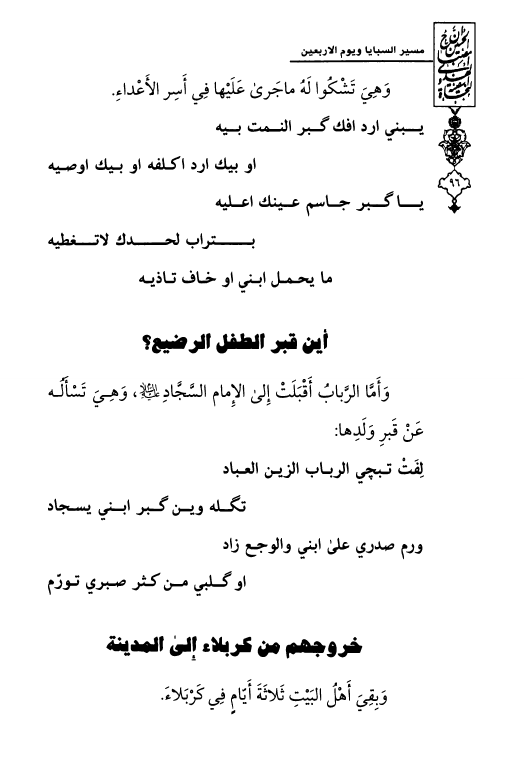 مسير السبايا ويوم الاربعين
٩٦
وَهِيَ تَشْكُوا لَهُ ماجَرىٰ عَلَيْها فِي أَسِر الأَعْداءِ.
يـبني ارد افك گـبر النـمت بـيه
او بيك ارد اكـلفه او بـيك اوصـيه
يـا گـبر جـاسم عـينك اعـليه
بـتراب لحـدك لاتـغطيه
ما يحـمـل ابـني او خـاف تـاذيـه
أين قبر الطفل الرضيع؟
وَأَمَّا الرَّبابُ أَقْبَلَتْ إِلىٰ الإِمام السَّجَّادِ، وَهِـيَ تَسْأَلُـه
عَنْ قَبرِ وَلَدِها:
لِفَتْ تـبچي الرباب الزيـن العـباد
تگـله ويـن گـبر ابـني يسـجاد
ورم صدري علىٰ ابني والوجـع زاد
او گـلبي مـن كـثر صـبري تـورّم
خروجهم من كربلاء إلىٰ المدينة
وَبِقِيَ أَهْلُ البَيْتِ ثَلاثَةَ أَيّامٍ فِي كَرْبَلاءَ.